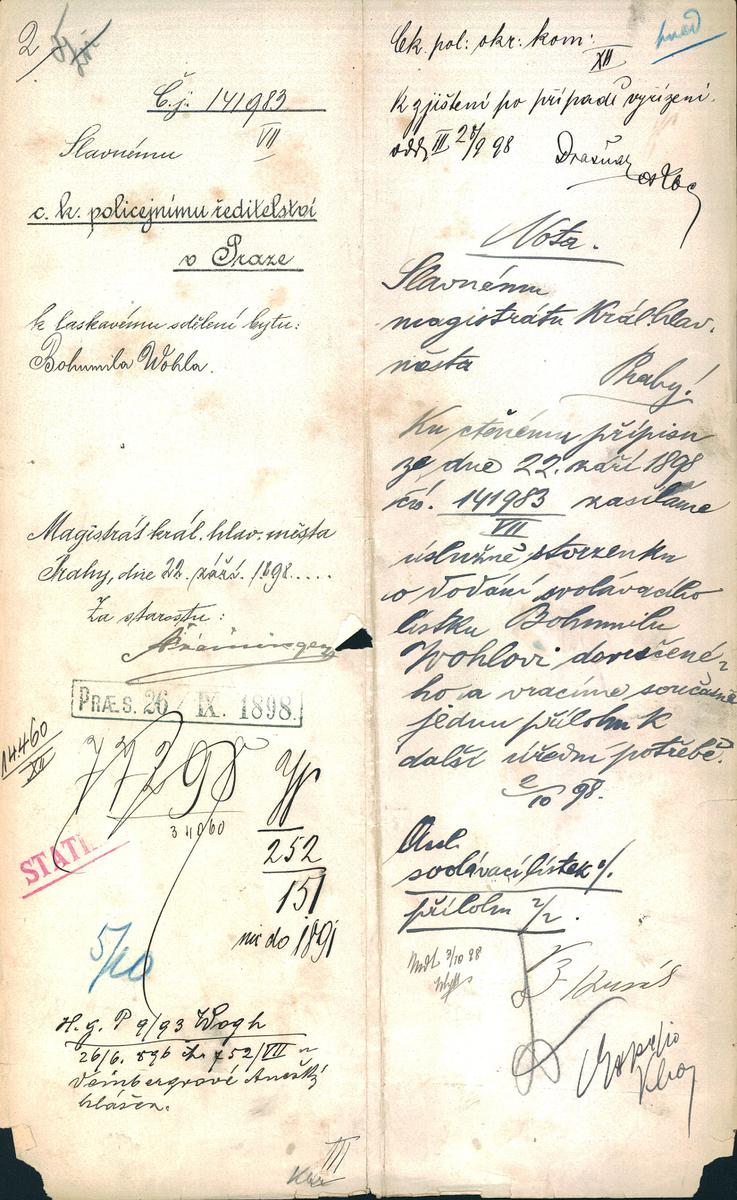 2/
Č.j. 141983
VII
Slavnému
c. k. policejnímu ředitelství
v Praze
k laskavému sdělení bytu:
Bohumila Wohla.
Magistrát král. hlav. města
Prahy, dne 22. září. 1898....
Za starostu:
PRÆS. 26 / IX. 1898.
14460
XII
77298
3 4060
252
151
nic do 1891
5/10
H. g. P 9/93 Wogh
26/6. 896 čp. 752/VII u
hlášen.
III
C.k. pol: okr. kom:
XII
hned
k zjištění po případě vyřízení.
odd III 26/9 98
Nota.
Slavnému
magistrátu Král. hlav.
města
Prahy!
Ku ctěnému přípisu
ze dne 22. září 1898
čís. 141983 zasíláme
VII
úslužně stvrzenku
o dodání svolávacího
lístku Bohumilu
Wohlovi doručené-
ho a vracíme současně
jednu přílohu k
další úřední potřebě.
2/10 98.
svolávací lístek ·/.
přílohu 2/2.
3/10 98